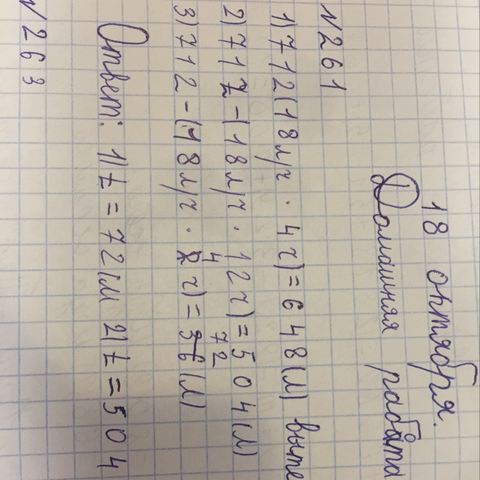 18 октября.
Домашняя работа
N261
1) 712(18л/ч · 4ч) = 648(л) выте
2) 712-(18л/ч · 12ч) = 504(л)
3) 712-(18л/ч · ч) = (л)
4 72
Ответ: 1)t = 72(л 2)t = 504
N263